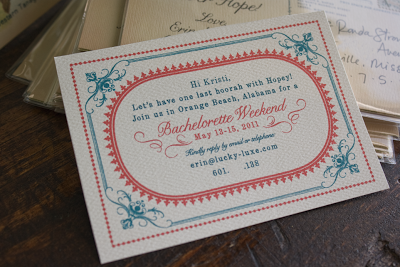 Hope!
Love
Erin
Hi Kristi,
Let's have one last hoorah with Hopey!
Join us in Orange Beach, Alabama for a
Bachelorette Weekend
May 13-15, 2011
Kindly reply by email or telephone
erin@lucky-luxe.com
601. .138